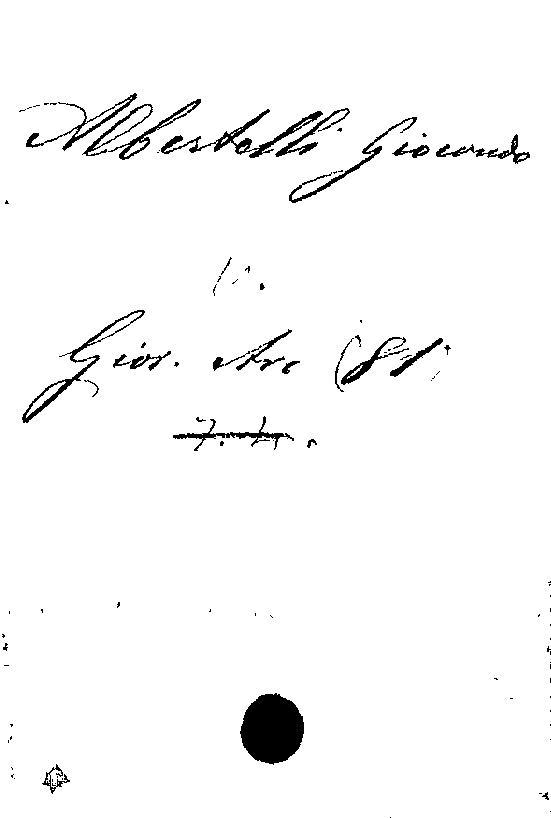 Albertelli Giocondo
Gior. Arc (81)